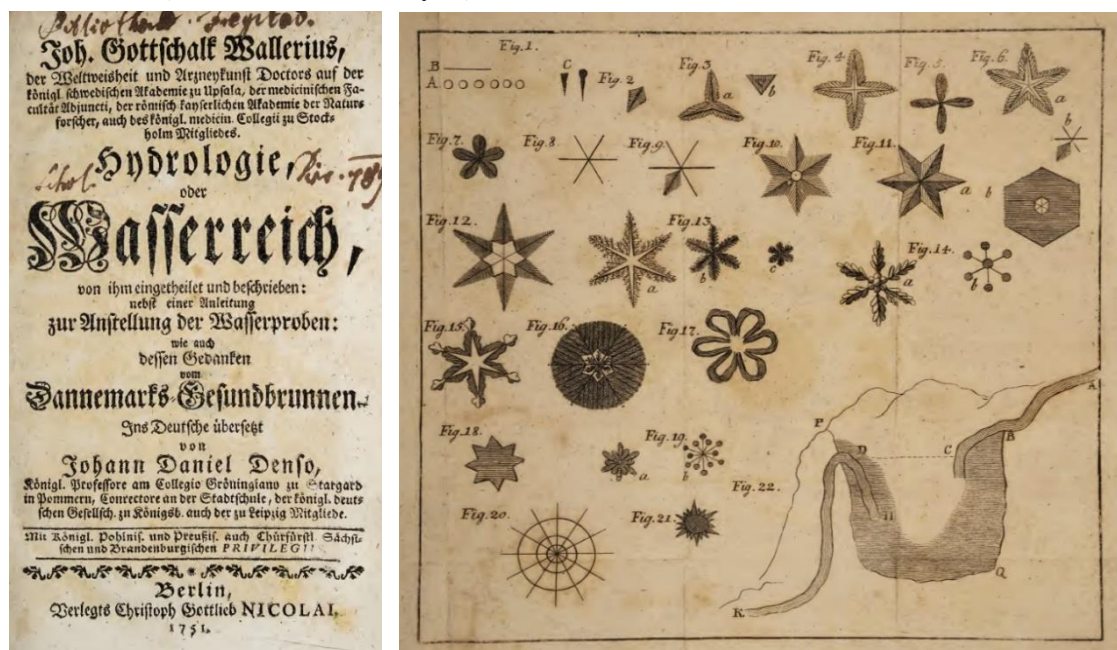 Joh. Gottschalk Wallerius,
der Weltweisheit und Arzneykunst Doctors auf der
königl. schwedischen Akademie zu Upsala, der medicinischen Fa-
cultät Adjuncti, der römisch kayserlichen Akademie der Natur-
forscher, auch des königl. medicin. Collegii zu Stock-
holm Mitgliedes.
Hydrologie,
oder
Wasserreich,
von ihm eingetheilet und beschrieben:
nebst einer Anleitung
zur Anstellung der Wasserproben:
wie auch
dessen Gedanken
vom
Dannemarks-Gesundbrunnen.
Ins Deutsche übersetzt
von
Johann Daniel Denso,
Königl. Professore am Collegio Gröningiano zu Stargard
in Pommern, Conrectore an der Stadtschule, der königl. deut-
schen Gesellsch. zu Königsb. auch der zu Leipzig Mitgliede.
Mit Königl. Pohlnis. und Preußis. auch Chürfürstl. Sächsi-
schen und Brandenburgischen PRIVILEGIIS
Berlin,
Verlegts Christoph Gottlieb NICOLAI,
1751.
Fig.1.
B
A
C
Fig.2
Fig.3
a
b
Fig.4.
Fig.5.
Fig.6.
a
b
Fig.7.
Fig.8.
Fig.9.
Fig.10.
Fig.11.
a
b
Fig.12.
a
Fig.13.
b
c
a
Fig.14.
b
Fig.15.
Fig.16.
Fig.17.
A
B
P
D
C
H
Q
K
Fig.18.
a
Fig.19.
b
Fig.22.
Fig.20.
Fig.21.